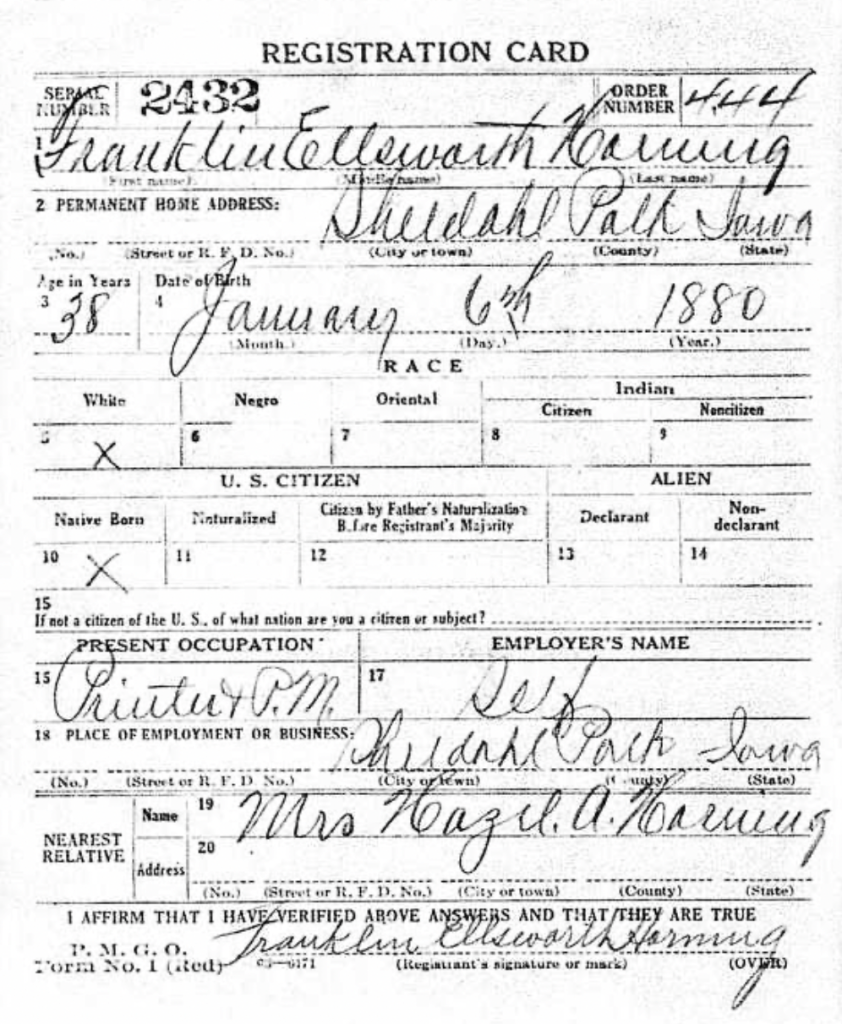 REGISTRATION CARD
SERIAL NUMBER 2432 ORDER NUMBER 444
1 Franklin Ellsworth Horning
(First name) (Middle name) (Last name)
2 PERMANENT HOME ADDRESS: Sheldahl Polk Iowa
(No.) (Street or R. F. D. No.) (City or town) (County) (State)
Age in Years Date of Birth
3 38 4 January 6th 1880
(Month.) (Day.) (Year.)
RACE
White Negro Oriental Indian
Citizen Noncitizen
5 X 6 7 8 9
U. S. CITIZEN ALIEN
Native Born Naturalized Citizen by Father's Naturalization Before Registrant's Majority Declarant Non-declarant
10 X 11 12 13 14
15
If not a citizen of the U. S., of what nation are you a citizen or subject?
PRESENT OCCUPATION EMPLOYER'S NAME
15 Printer & P.M. 17 Self
18 PLACE OF EMPLOYMENT OR BUSINESS: Sheldahl Polk Iowa
(No.) (Street or R. F. D. No.) (City or town) (County) (State)
NEAREST RELATIVE Name 19 Mrs Hazel. A. Horning
Address 20
(No.) (Street or R. F. D. No.) (City or town) (County) (State)
I AFFIRM THAT I HAVE VERIFIED ABOVE ANSWERS AND THAT THEY ARE TRUE
P. M. G. O. Franklin Ellsworth Horning
Form No. 1 (Red) 03—6171 (Registrant's signature or mark) (OVER)